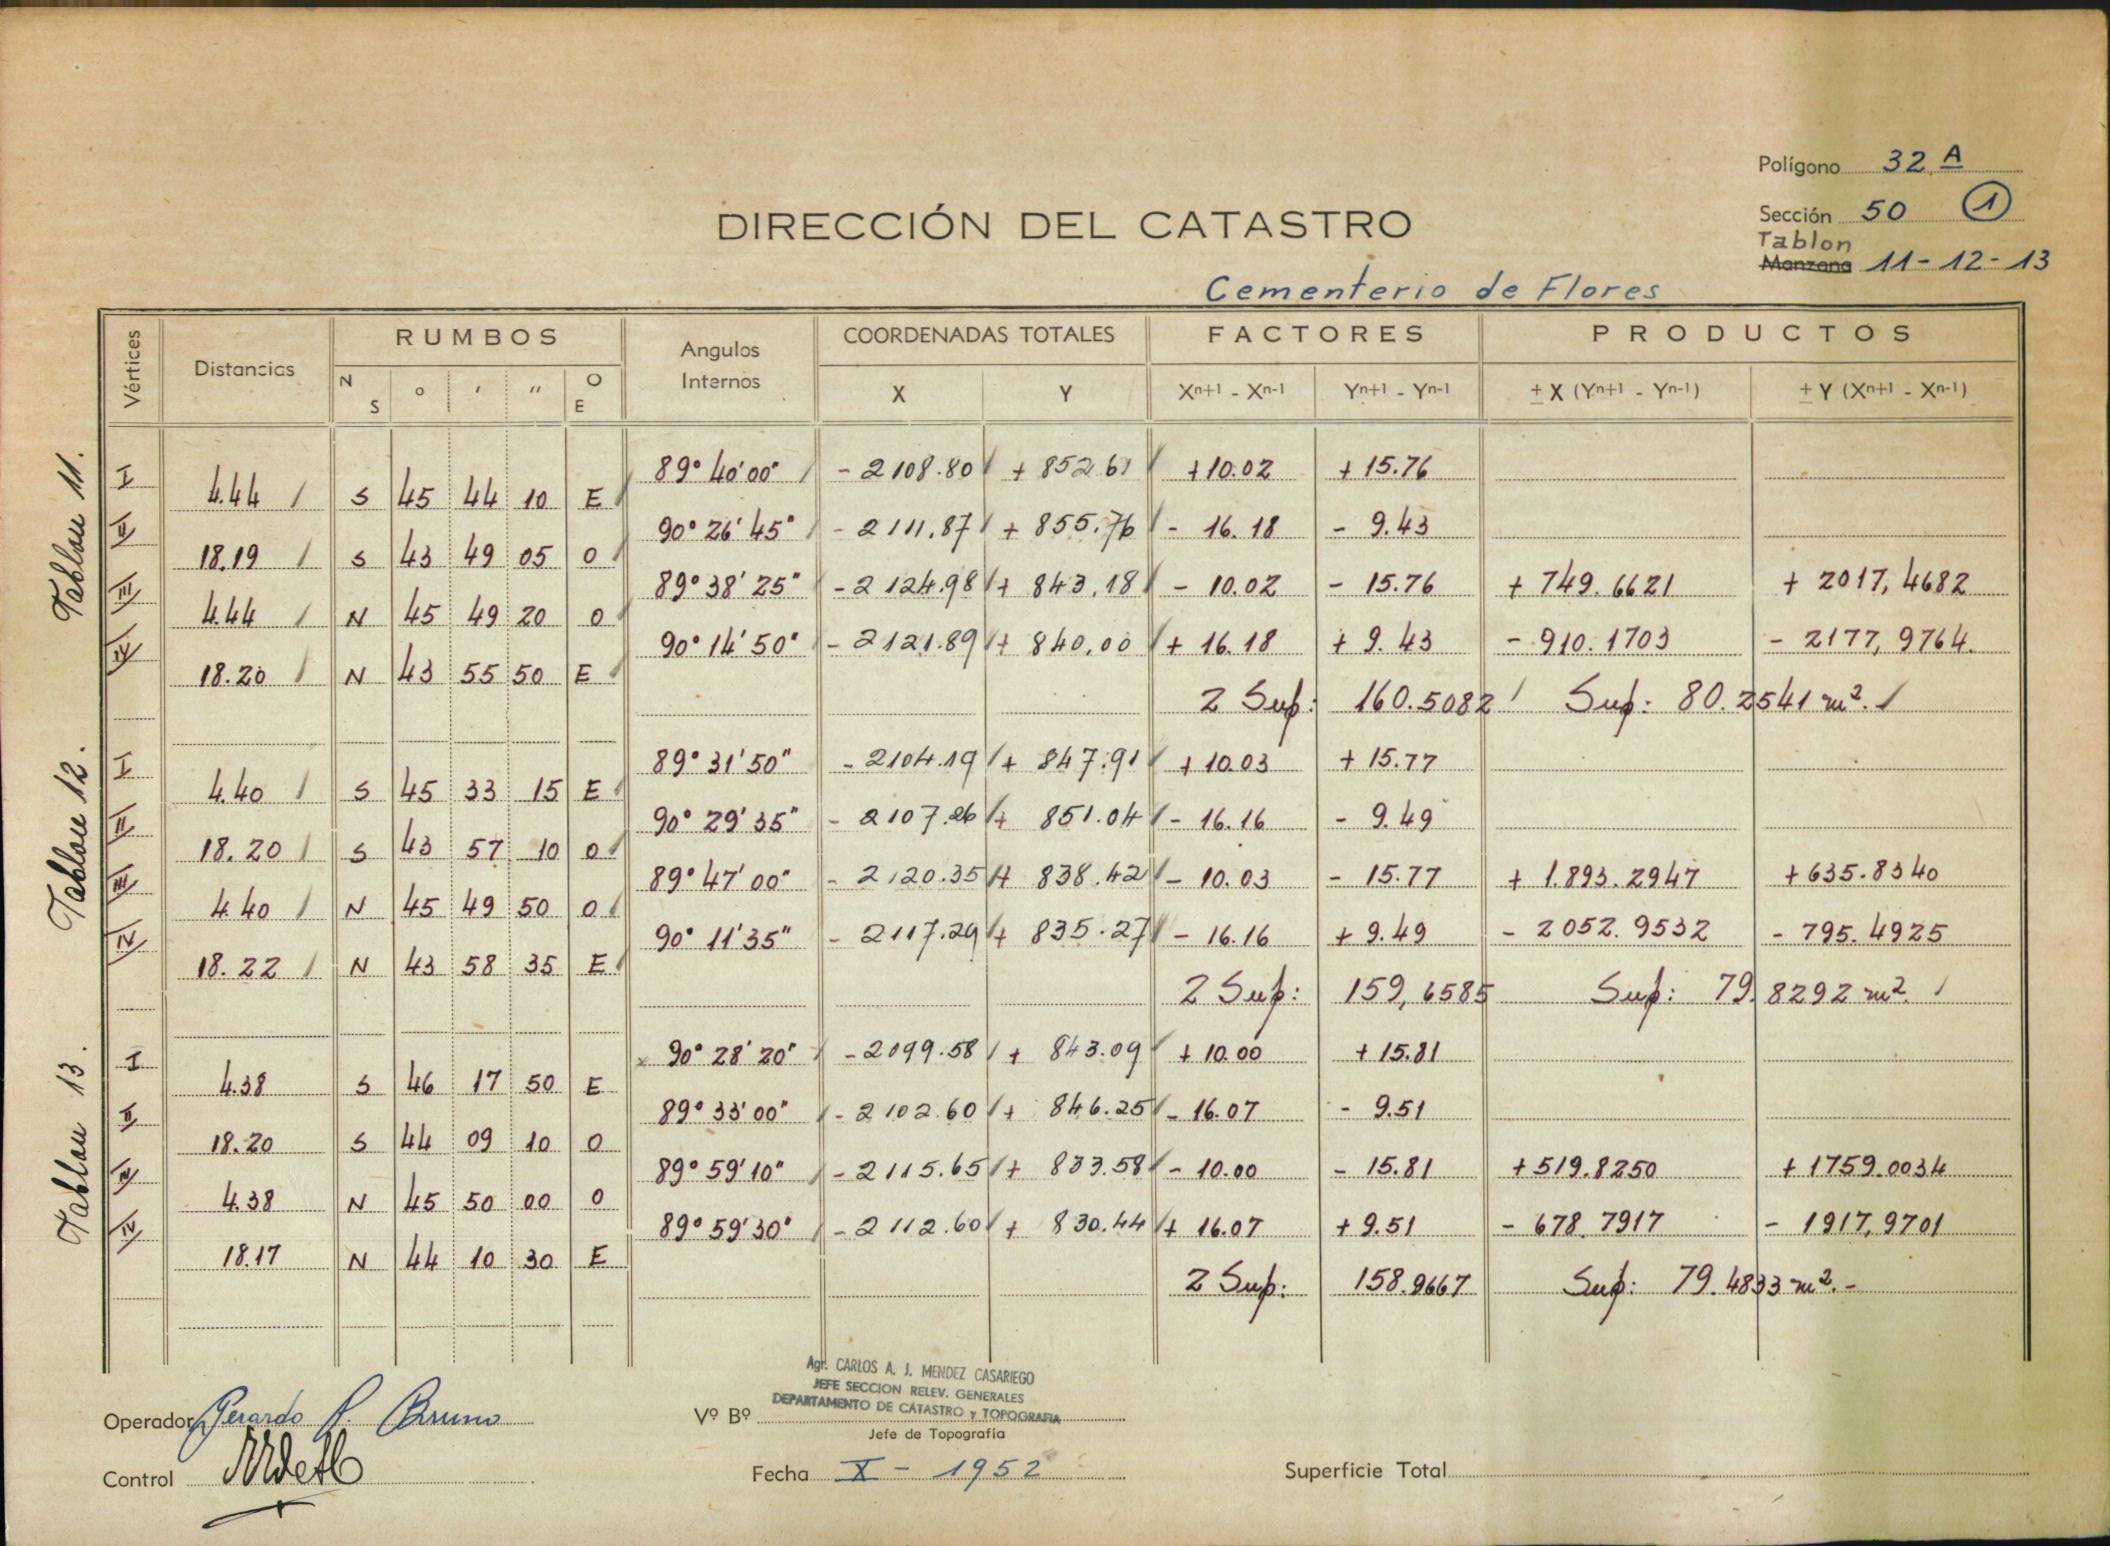 Polígono 32 A
Sección 50 1
Tablon
Manzana 11-12-13
DIRECCIÓN DEL CATASTRO
Cementerio de Flores
Vértices Distancias RUMBOS Angulos Internos COORDENADAS TOTALES FACTORES PRODUCTOS
N S ° ' " O E X Y Xn+1 - Xn-1 Yn+1 - Yn-1 ± X (Yn+1 - Yn-1) ± Y (Xn+1 - Xn-1)
Tablon 11.
I 89° 40' 00" - 2108.80 + 852.61 + 10.02 + 15.76
4.44 S 45 44 10 E
II 90° 26' 45" - 2111.87 + 855.76 - 16.18 - 9.43
18.19 S 43 49 05 O
III 89° 38' 25" - 2124.98 + 843.18 - 10.02 - 15.76 + 749.6621 + 2017,4682
4.44 N 45 49 20 O
IV 90° 14' 50" - 2121.89 + 840,00 + 16.18 + 9.43 - 910.1703 - 2177,9764.
18.20 N 43 55 50 E
2 Sup: 160.5082 Sup: 80.2541 m².
Tablon 12.
I 89° 31' 50" - 2104.19 + 847.91 + 10.03 + 15.77
4.40 S 45 33 15 E
II 90° 29' 35" - 2107.26 + 851.04 - 16.16 - 9.49
18.20 S 43 57 10 O
III 89° 47' 00" - 2120.35 + 838.42 - 10.03 - 15.77 + 1.893.2947 + 635.8340
4.40 N 45 49 50 O
IV 90° 11' 35" - 2117.29 + 835.27 - 16.16 + 9.49 - 2052.9532 - 795.4925
18.22 N 43 58 35 E
2 Sup: 159,6585 Sup: 79.8292 m².
Tablon 13.
I 90° 28' 20" - 2099.58 + 843.09 + 10.00 + 15.81
4.38 S 46 17 50 E
II 89° 33' 00" - 2102.60 + 846.25 - 16.07 - 9.51
18.20 S 44 09 10 O
89° 59' 10" - 2115.65 + 833.58 - 10.00 - 15.81 + 519.8250 + 1759.0034
4.38 N 45 50 00 O
IV 89° 59' 30" - 2112.60 + 830.44 + 16.07 + 9.51 - 678.7917 - 1917,9701
18.17 N 44 10 30 E
2 Sup: 158.9667 Sup: 79.4833 m².-
Agr. CARLOS A. J. MENDEZ CASARIEGO
JEFE SECCION RELEV. GENERALES
DEPARTAMENTO DE CATASTRO y TOPOGRAFIA
Operador Gerardo A. Bruno Vº Bº
Jefe de Topografía
Control Fecha X - 1952 Superficie Total